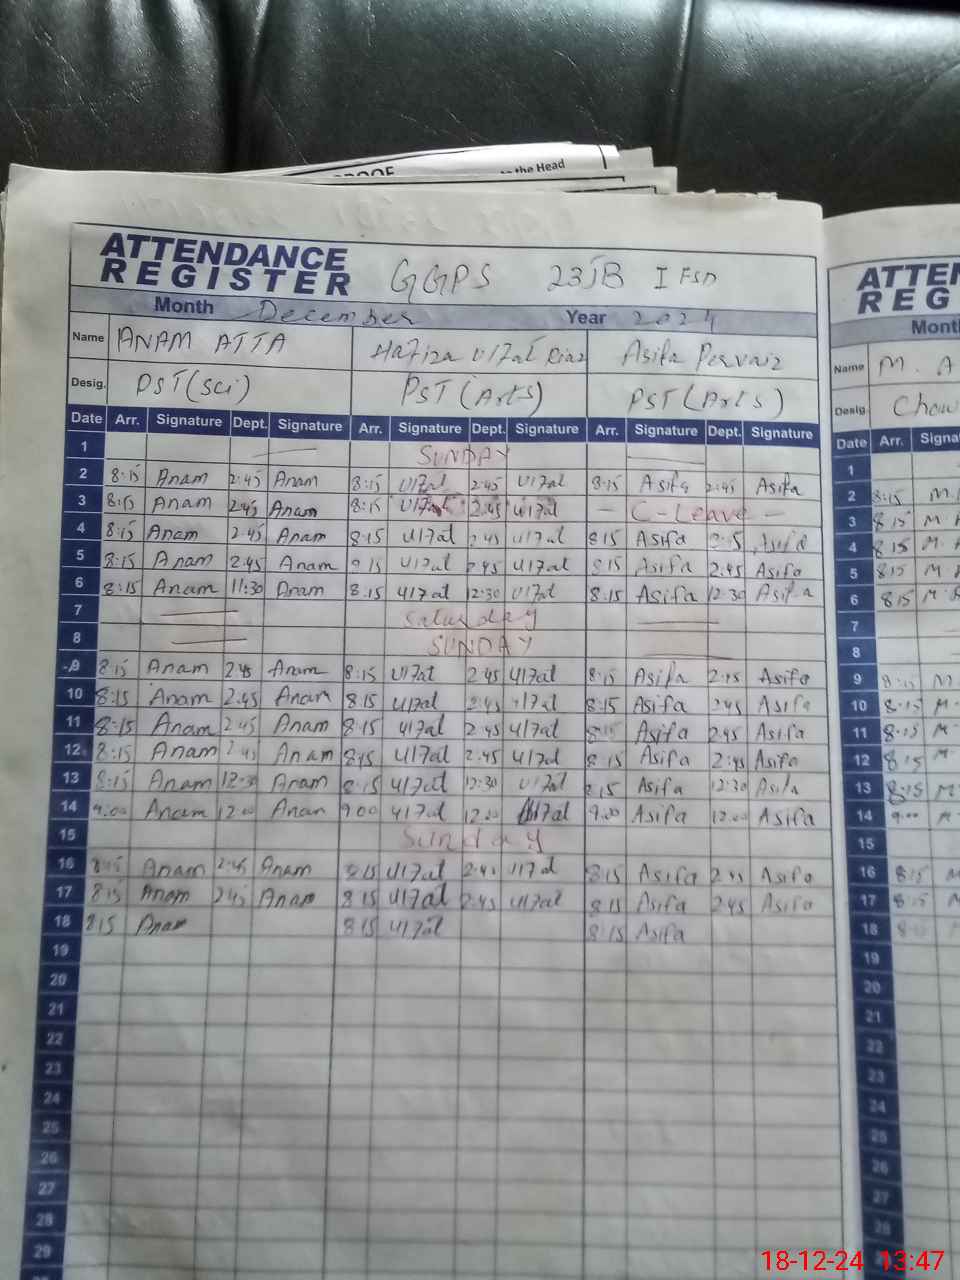 to the Head
ATTENDANCE
REGISTER GGPS 23JB I FSD
Month December Year 2024
Name ANAM ATTA Hafiza Ulfat Riaz Asifa Pervaiz
Desig. PST (Sci) PST (Arts) PST (Arts)
Date Arr. Signature Dept. Signature Arr. Signature Dept. Signature Arr. Signature Dept. Signature
1 SUNDAY
2 8:15 Anam 2:45 Anam 8:15 Ulfat 2:45 Ulfat 8:15 Asifa 2:45 Asifa
3 8:15 Anam 2:45 Anam 8:15 Ulfat 2:45 Ulfat — C-Leave —
4 8:15 Anam 2:45 Anam 8:15 Ulfat 2:45 Ulfat 8:15 Asifa 2:45 Asifa
5 8:15 Anam 2:45 Anam 8:15 Ulfat 2:45 Ulfat 8:15 Asifa 2:45 Asifa
6 8:15 Anam 11:30 Anam 8:15 Ulfat 12:30 Ulfat 8:15 Asifa 12:30 Asifa
7 Saturday
8 SUNDAY
9 8:15 Anam 2:45 Anam 8:15 Ulfat 2:45 Ulfat 8:15 Asifa 2:45 Asifa
10 8:15 Anam 2:45 Anam 8:15 Ulfat 2:45 Ulfat 8:15 Asifa 2:45 Asifa
11 8:15 Anam 2:45 Anam 8:15 Ulfat 2:45 Ulfat 8:15 Asifa 2:45 Asifa
12 8:15 Anam 2:45 Anam 8:15 Ulfat 2:45 Ulfat 8:15 Asifa 2:45 Asifa
13 8:15 Anam 12:30 Anam 8:15 Ulfat 12:30 Ulfat 8:15 Asifa 12:30 Asifa
14 9:00 Anam 12:00 Anam 9:00 Ulfat 12:00 Ulfat 9:00 Asifa 12:00 Asifa
15 Sunday
16 8:15 Anam 2:45 Anam 8:15 Ulfat 2:45 Ulfat 8:15 Asifa 2:45 Asifa
17 8:15 Anam 2:45 Anam 8:15 Ulfat 2:45 Ulfat 8:15 Asifa 2:45 Asifa
18 8:15 Anam 8:15 Ulfat 8:15 Asifa
19
20
21
22
23
24
25
26
27
28
29
Name M. A
Desig.
Date Arr.
1
2 8:15 M.
3 8:15 M
4 8:15 M.
5 8:15 M
6 8:15 M
7
8
9 8:15 M
10 8:15 M
11 8:15 M
12 8:15 M
13 8:15 M
14 9:00 M
15
16 8:15
17 8:15
18 8:15
19
20
21
22
23
24
25
26
27
28
18-12-24 13:47